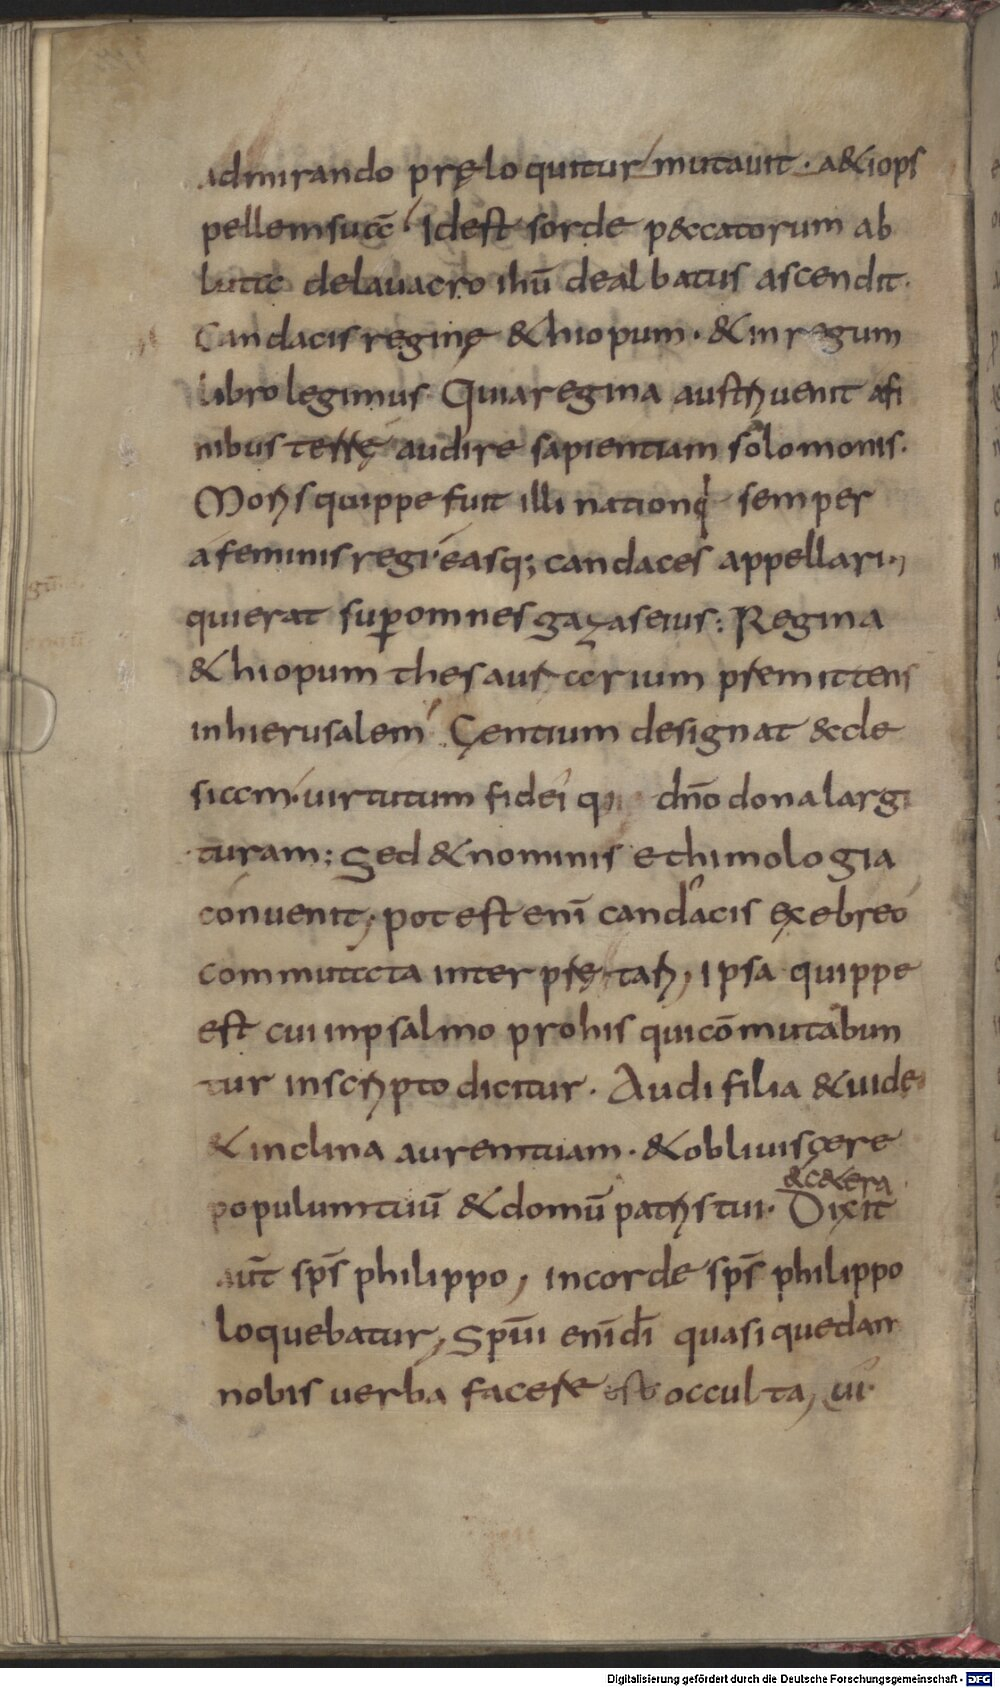 admirando pręloquitur mutauit · a&iops
pellem suā · Idest sorde peccatorum ab
luta delauacro ihū dealbatus ascendit·
Candacis reginę &hiopum · &inregum
libro legimus Quiaregina austri uenit afi
nibus terrę audire sapientiam solomonis·
Moris quippe fuit illi nationi semper
afeminis regi easq; candaces appellari·,
quierat sup omnes gazas eius : Regina
&hiopum thesaur corium premittens
inhierusalem Gentium designat eccle
siam · uirtutum fidei q dn̄o dona largi
turam : Sed & nominis ethimologia
conuenit, potest enī candacis exebreo
commutata interpretari, ipsa quippe
est cui inpsalmo prohis quicōmutabun
tur inscripto dicitur · Audi filia & uide
& inclina aurem tuam · & obliuiscere
&c&era
populum tuū & domū patris tui · Dixit
aūt sp̄s philippo, incorde sp̄s philippo
loquebatur, Sp̄ui enī dī quasi quedam
nobis uerba facere est occulta, ui·
Digitalisierung gefördert durch die Deutsche Forschungsgemeinschaft - DFG